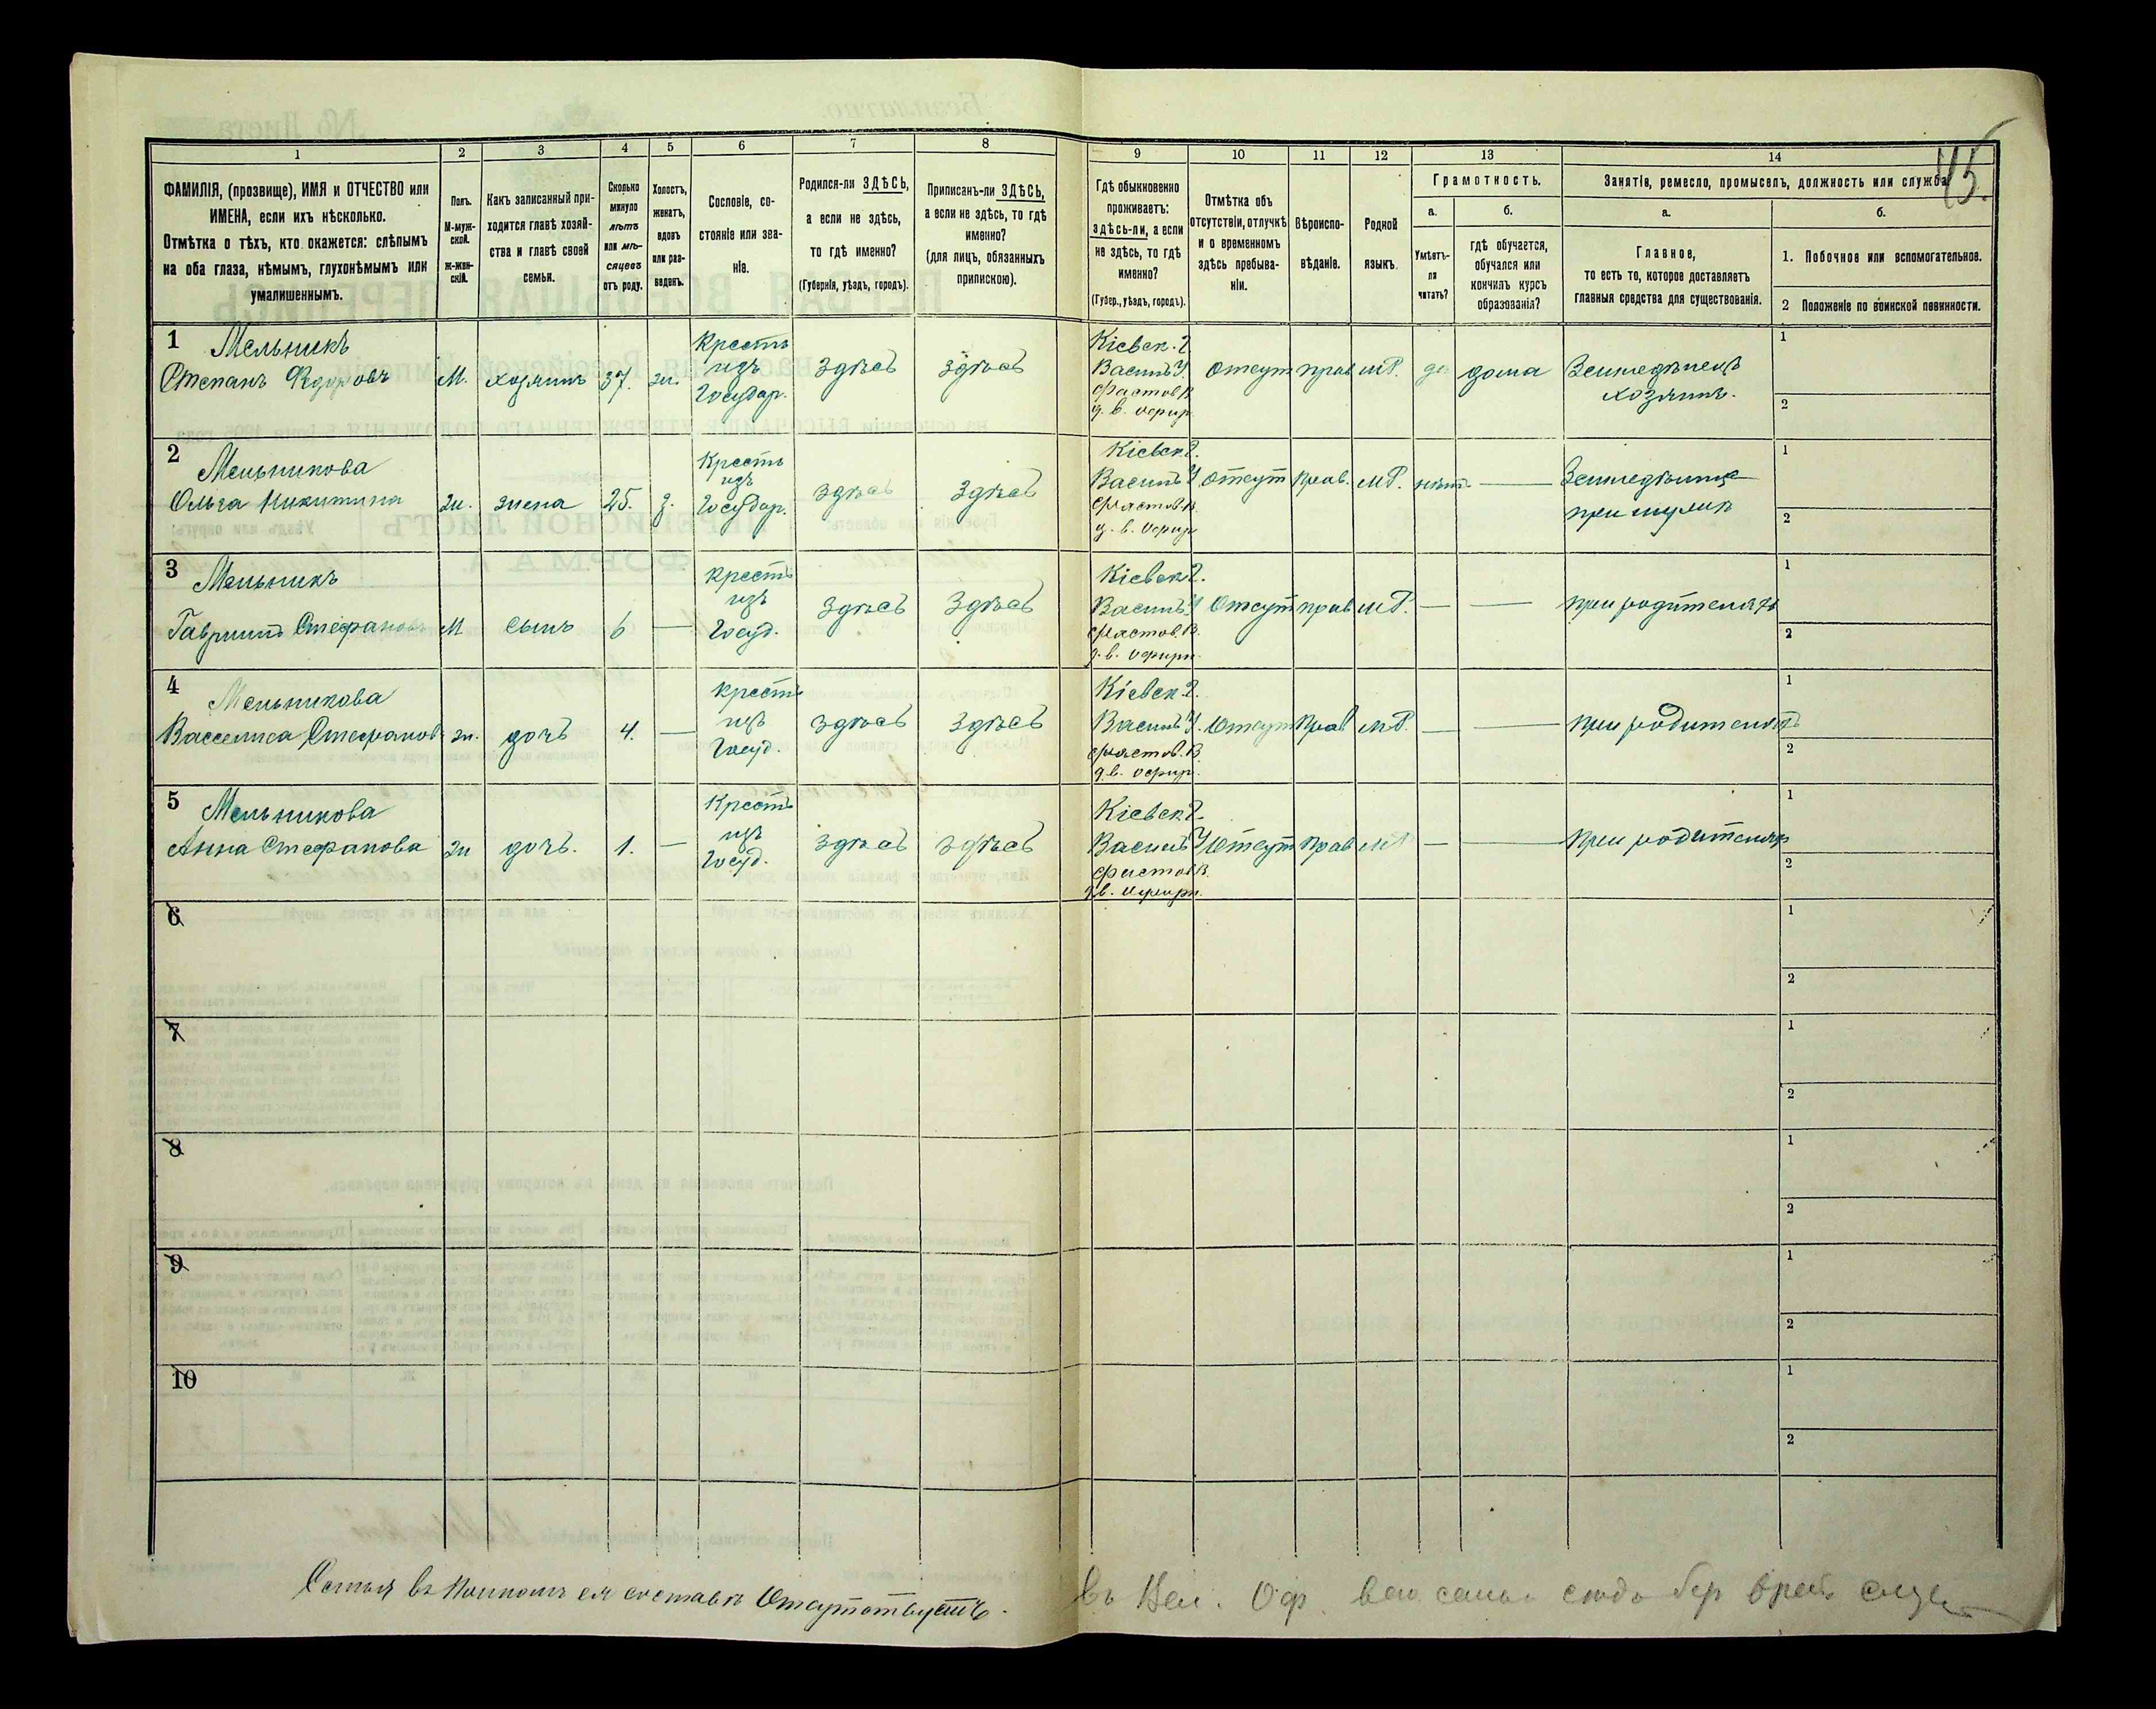 45.
1 2 3 4 5 6 7 8 9 10 11 12 13 14
ФАМИЛІЯ, (прозвище), ИМЯ и ОТЧЕСТВО или
ИМЕНА, если ихъ нѣсколько.
Отмѣтка о тѣхъ, кто окажется: слѣпымъ
на оба глаза, нѣмымъ, глухонѣмымъ или
умалишеннымъ.
Полъ.
М-муж-
ской.
Ж-жен-
скій.
Какъ записанный при-
ходится главѣ хозяй-
ства и главѣ своей
семьи.
Сколько
минуло
лѣтъ
или мѣ-
сяцевъ
отъ роду.
Холостъ,
женатъ,
вдовъ
или раз-
веденъ.
Сословіе, со-
стояніе или зва-
ніе.
Родился-ли ЗДѢСЬ,
а если не здѣсь,
то гдѣ именно?
(Губернія, уѣздъ, городъ).
Приписанъ-ли ЗДѢСЬ,
а если не здѣсь, то гдѣ
именно?
(для лицъ, обязанныхъ
припискою).
Гдѣ обыкновенно
проживаетъ:
здѣсь-ли, а если
не здѣсь, то гдѣ
именно?
(Губер., уѣздъ, городъ).
Отмѣтка объ
отсутствіи, отлучкѣ
и о временномъ
здѣсь пребыва-
ніи.
Вѣроиспо-
вѣданіе.
Родной
языкъ.
Грамотность.
а.
Умѣетъ-
ли
читать?
б.
гдѣ обучается,
обучался или
кончилъ курсъ
образованія?
Занятіе, ремесло, промыселъ, должность или служба
а.
Главное,
то есть то, которое доставляетъ
главныя средства для существованія.
б.
1. Побочное или вспомогательное.
2 Положеніе по воинской повинности.
1 Мельникъ
Степанъ
М. хозяинъ 37. ж.
Крестъ
изъ
Государ.
здѣсь здѣсь
Кіевск. г.
Васильк. У.
Фастов. В.
Отсут прав МР. да дома
Земледѣлецъ
хозяинъ.
1
2
2 Мельникова
Ольга Никитина
ж. жена 25. з.
Крестъ
изъ
Государ.
здѣсь здѣсь
Кіевск. г.
Василь. У.
Фастов. В.
отсут прав. МР. нѣтъ —
при мужѣ
1
2
3 Мельникъ
Гавріилъ Стефановъ
М сынъ 6 —
Крестъ
изъ
Госуд.
здѣсь здѣсь
Кіевск. г.
Василь. У
Фастов. В.
Отсут прав. МР. — —
при родителяхъ
1
2
4 Мельникова
Васселиса Стефанов
ж. дочь 4. —
Крестъ
изъ
Госуд.
здѣсь здѣсь
Кіевск. г.
Василь. У.
Фастов. В
Отсут Прав МР. — —
при родителяхъ
1
2
5 Мельникова
Анна Стефанова
ж дочь. 1. —
Крестъ
изъ
Госуд.
здѣсь здѣсь
Кіевск. г.
Василь У
Фастов В.
Отсут Прав МР — —
при родителях
1
2
6 1
2
7 1
2
8 1
2
9 1
2
10 1
2
Семья въ полномъ ея составѣ Отсутствуетъ.
въ Вел. Оф.